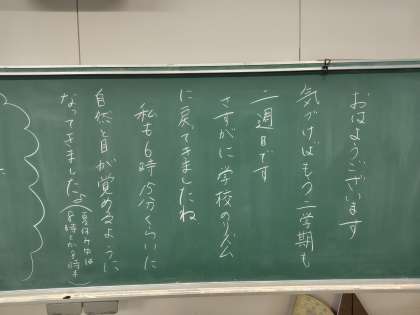 おはようございます
気がつけばもう二学期も
二週目です
さすがに学校のリズム
に戻ってきましたね
私も6時15分くらいに
自然と目が覚めるように
なってきました
(夏休み中は
8時とか9時も)